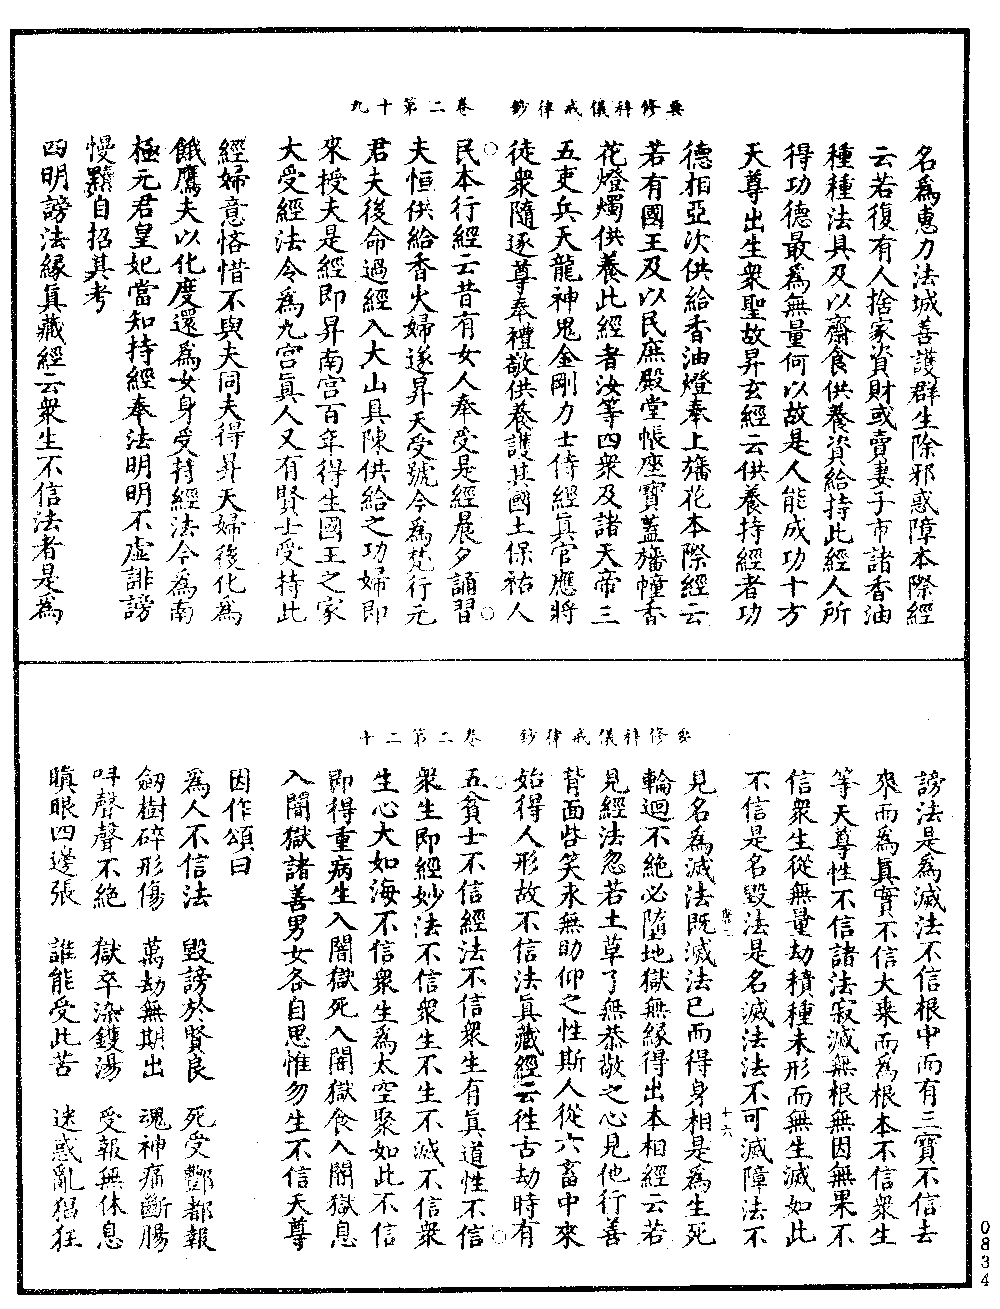 要修科儀戒律鈔　卷二第十九
名爲惠力法城善護群生除邪惑障本際經
云若復有人捨家資財或賣妻子市諸香油
種種法具及以齋食供養資給持此經人所
得功德最爲無量何以故是人能成功十方
天尊出生衆聖故昇玄經云供養持經者功
德相亞次供給香油燈奉上旛花本際經云
若有國王及以民庶殿堂帳座寶蓋旛幢香
花燈燭供養此經者汝等四衆及諸天帝三
五吏兵天龍神鬼金剛力士侍經眞官應將
徒衆隨逐尊奉禮敬供養護其國土保祐人
民本行經云昔有女人奉受是經晨夕誦習
夫恒供給香火婦遂昇天受號今爲梵行元
君夫後命過經入大山具陳供給之功婦即
來授夫是經即昇南宮百年得生國王之家
大受經法今爲九宮眞人又有賢士受持此
經婦意悋惜不與夫同夫得昇天婦後化爲
餓鷹夫以化度還爲女身受持經法今爲南
極元君皇妃當知持經奉法明明不虛誹謗
慢黷自招其考
四明謗法緣眞藏經云衆生不信法者是爲
要修科儀戒律鈔　卷二第二十
謗法是爲滅法不信根中而有三寶不信去
來而爲眞實不信大乘而爲根本不信衆生
等天尊性不信諸法寂滅無根無因無果不
信衆生從無量劫積種未形而無生滅如此
不信是名毀法是名滅法法不可滅障法不
十六
見名爲滅法既滅法已而得身相是爲生死
輪迴不絕必墮地獄無緣得出本相經云若
見經法忽若土草了無恭敬之心見他行善
背面呰笑永無助仰之性斯人從六畜中來
始得人形故不信法眞藏經云往古劫時有
五貧士不信經法不信衆生有眞道性不信
衆生即經妙法不信衆生不生不滅不信衆
生心大如海不信衆生爲太空聚如此不信
即得重病生入闇獄死入闇獄食入闇獄息
入闇獄諸善男女各自思惟勿生不信天尊
因作頌曰
爲人不信法　毀謗於賢良　死受酆都報
劔樹碎形傷　萬劫無期出　魂神痛斷腸
呌聲聲不絕　獄卒染鑊湯　受報無休息
瞋眼四邊張　誰能受此苦　迷惑亂猖狂
0834